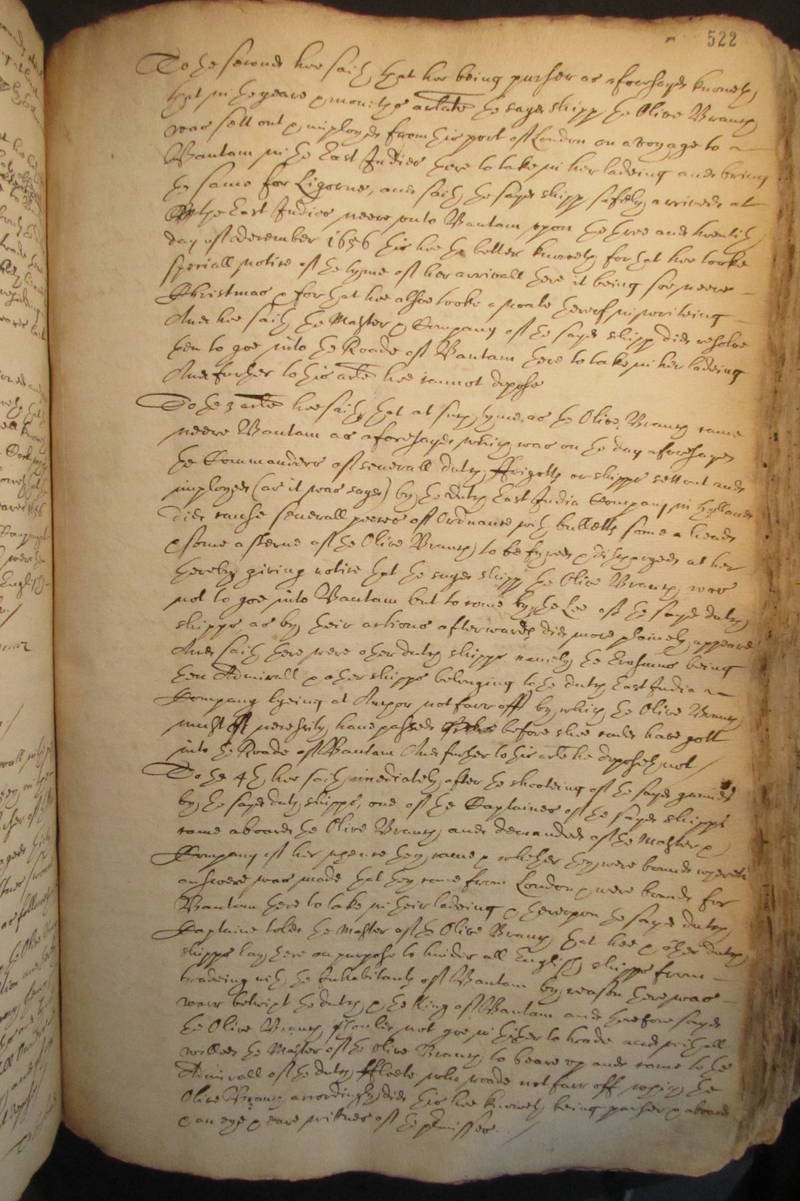 522
To the second hee saith that hee being purser as aforesayd knoweth
that in the yeare & moneths arlate the sayd shipp the Olive Branch
was sett out & imployed from this port of London on a voyage to
Bantam in the East Indies there to take in her ladeing and bring
the same for Ligorne, and saith the sayd shipp safely arrived at
the East Indies neere unto Bantam upon the three and twentith
day of December 1656 this hee the better knoweth for that hee tooke
speciall notice of the tyme of her arrivall there it being soe neere
Christmas & for that hee alsoe tooke a noate thereof in writeing
And hee saith the Master & Company of the sayd shipp did resolve
then to goe into the Roade of Bantam there to take in her ladeing
And further to this arle hee cannot depose
To the 3 arle hee saith that at such tyme as the Olive Branch came
neere Bantam as aforesayd which was on the day aforesayd
the Commanders of severall dutch ffrigotts or shipps sett out and
imployed (as it was sayd) by the dutch East India Company in Holland
did cause severall peeces of Ordnance with bulletts some a head
& some a sterne of the Olive Branch to be fyred & discharged at her
thereby giving notice that the sayd shipp the Olive Branch was
not to goe into Bantam but to come by the Lee of the sayd dutch
shipps as by their actions afterwards did more plainely appeare
And saith there were other dutch shipps namely the Erasmus being
then Admirall & other shipps belonging to the dutch East India
Company lyeing at Anpor not farr off by which the Olive Branch
must of necessity have passed before shee could have gott
into the Roade of Bantam And further to this arle he deposeth not
To the 4th hee saith imediately after the shooteing of the sayd gunns
by the sayd dutch shipps, one of the Captaines of the sayd shipps
came aboard the Olive Branch and demanded of the Master &
Company of her whence they came & whether they were bound whereto
answere was made that they came from London & were bound for
Bantam there to take in their ladeing & thereupon the sayd dutch
Captaine told the Master of the Olive Branch that hee & other dutch
shipps lay there on purpose to hinder all English shipps from
tradeing with the Inhabitants of Bantam by reason there was
warr betwixt the dutch & the King of Bantam and therefore sayd
the Olive Branch should not goe in thither to trade and withall
willed the Master of the Olive Branch to beare up and come to the
Admirall of the dutch ffleete who roade not farr off which the
Olive Branch accordingly did this hee knoweth being purser & aboard
& an eye & eare witnes of the premisses